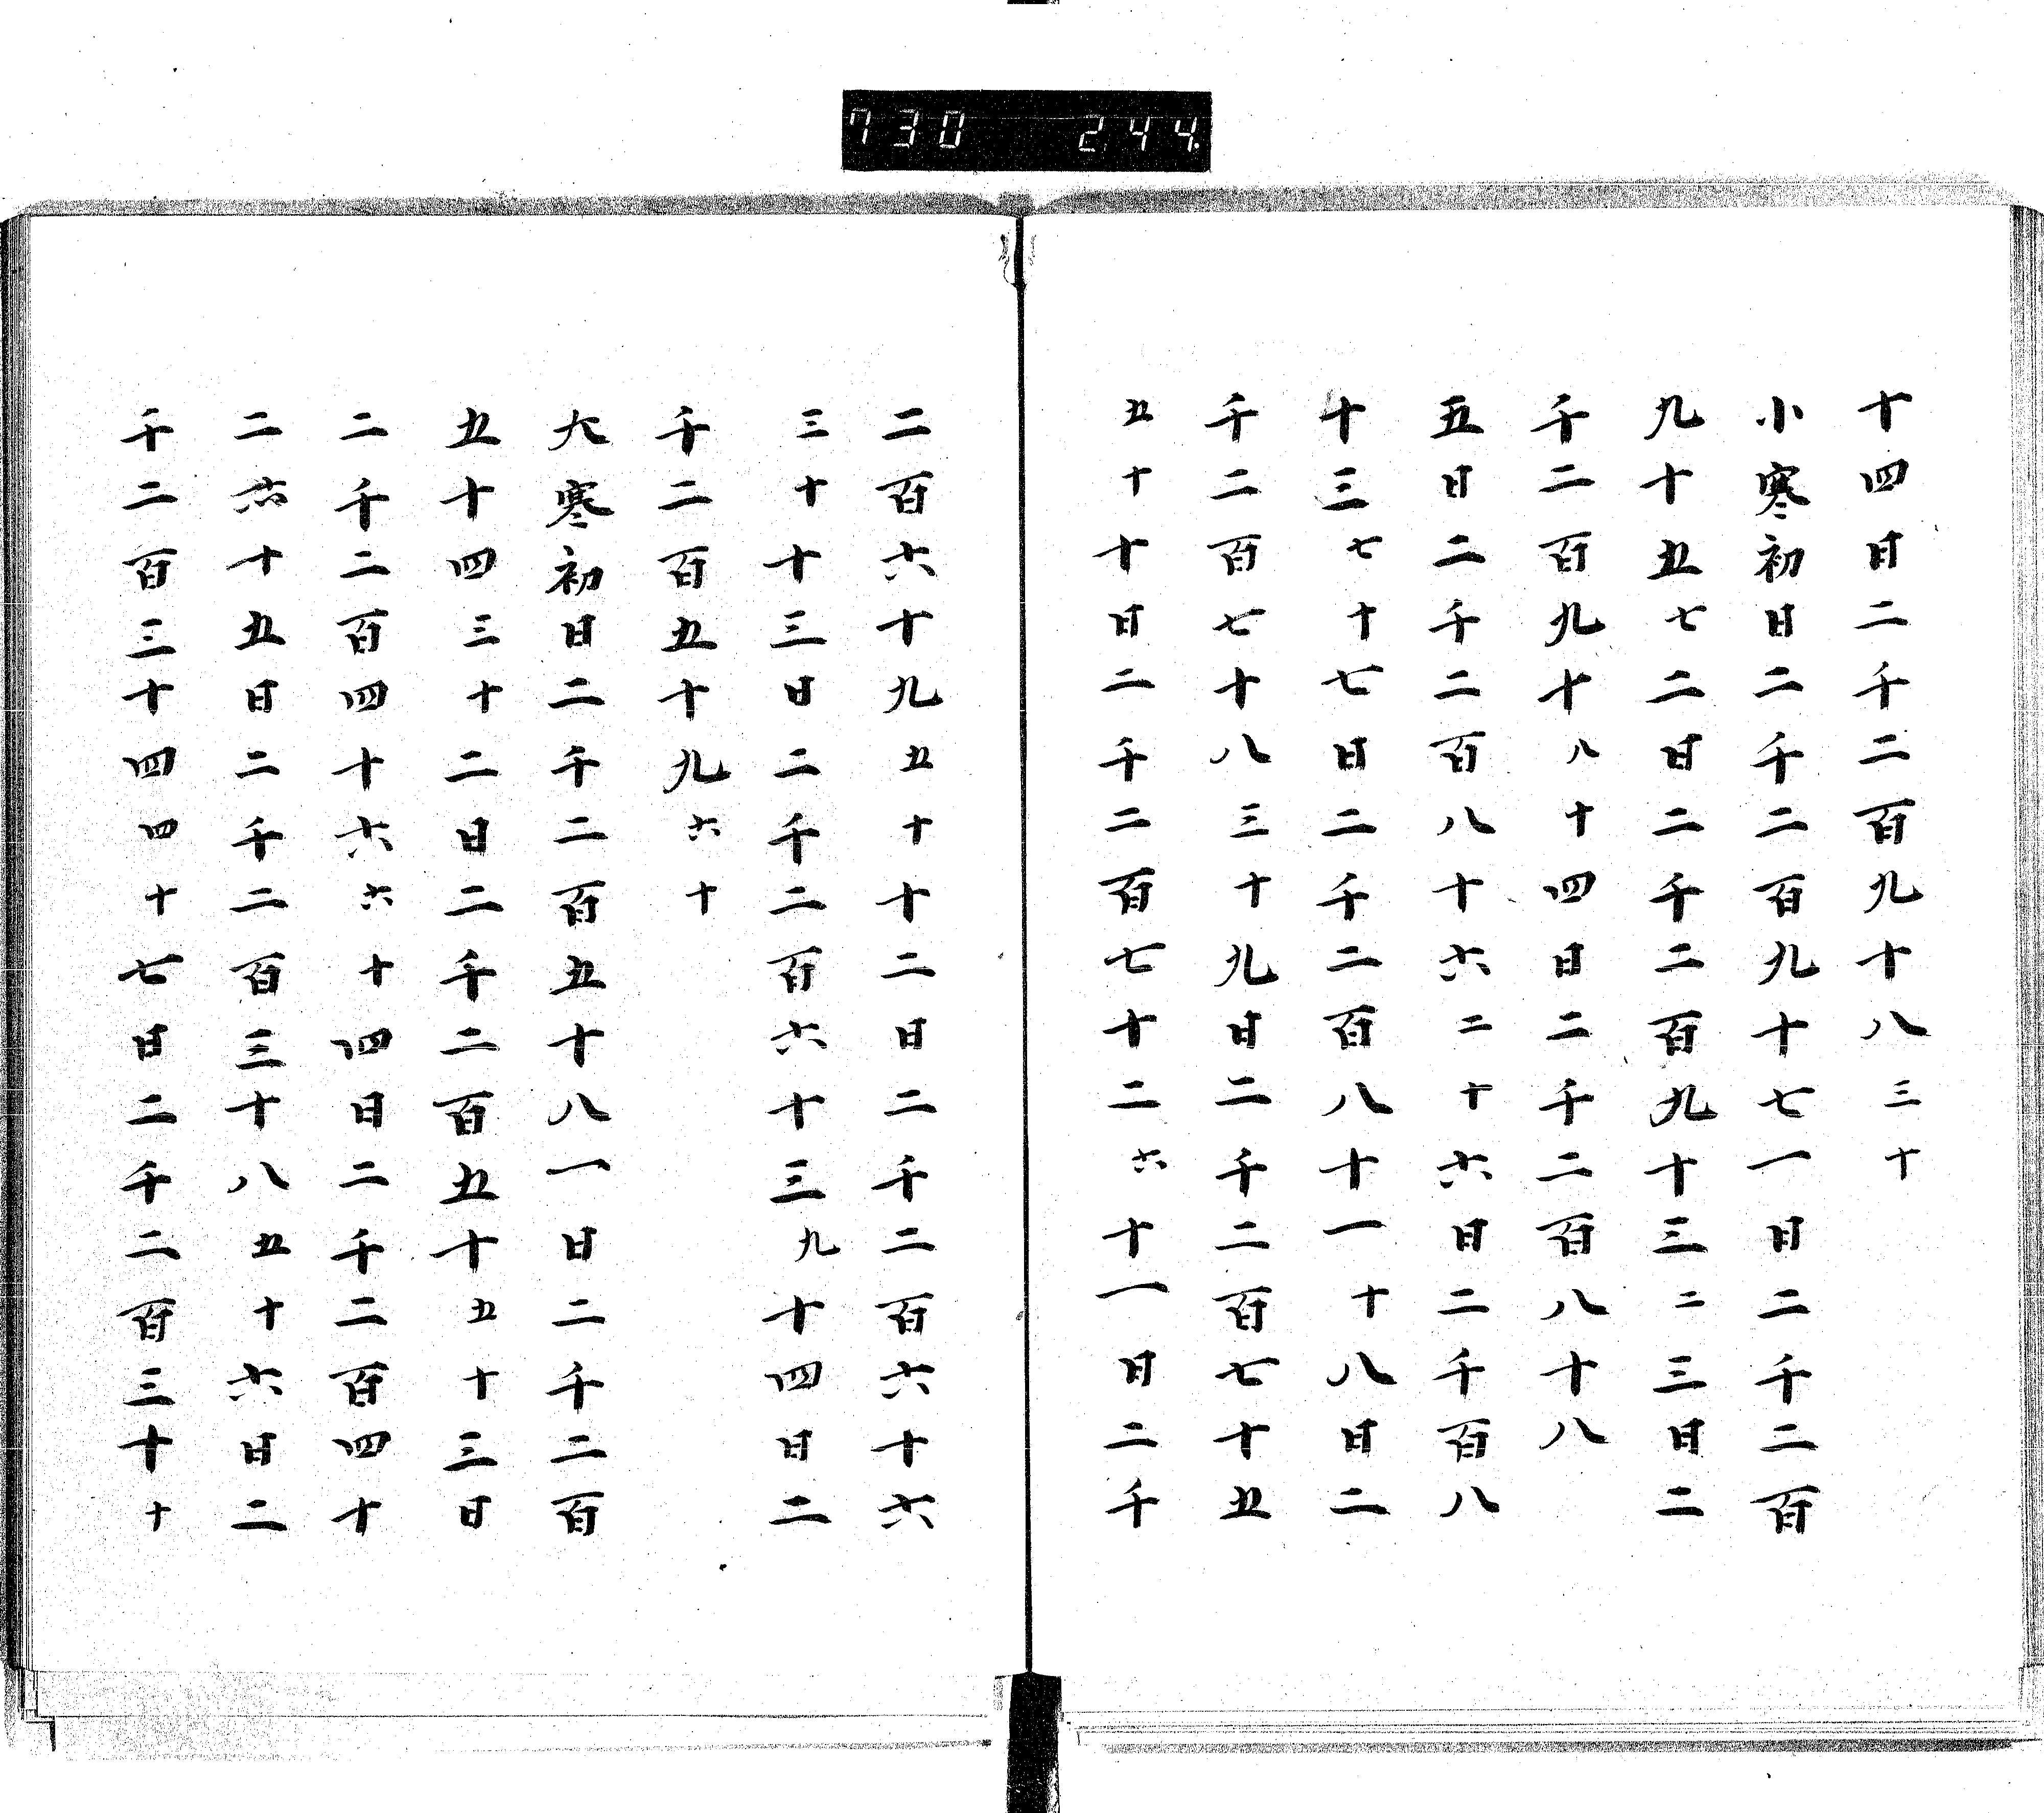 730 244
十四日二千二百九十八三十
小寒初日二千二百九十七一日二千二百
九十五七二日二千二百九十三二三日二
千二百九十八十四日二千二百八十八
五日二千二百八十六二十六日二千百八
十三七十七日二千二百八十一十八日二
千二百七十八三十九日二千二百七十五
五十十日二千二百七十二六十一日二千
二百六十九五十十二日二千二百六十六
三十十三日二千二百六十三九十四日二
千二百五十九六十
大寒初日二千二百五十八一日二千二百
五十四三十二日二千二百五十五十三日
二千二百四十六六十四日二千二百四十
二六十五日二千二百三十八五十六日二
千二百三十四四十七日二千二百三十十